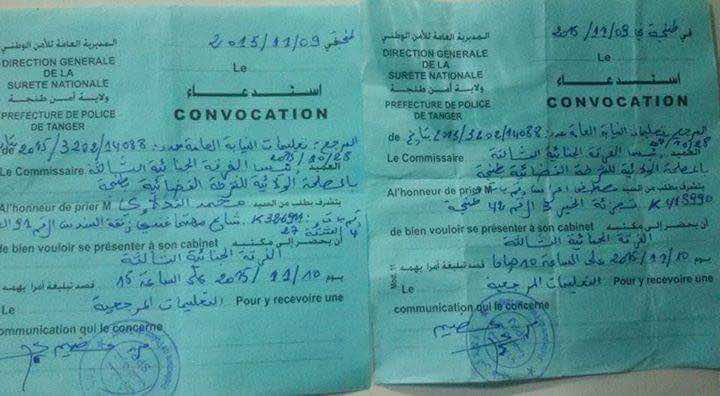 المديرية العامة للأمن الوطني
DIRECTION GENERALE
DE LA
SURETE NATIONALE
ولاية أمن طنجة
PREFECTURE DE POLICE
DE TANGER
في 2015/11/09
Le
استدعاء
CONVOCATION
المرجع: تعليمات النيابة العامة عدد: 2015/3202/14088
de
2015/10/28
Le Commissaire العميد رئيس الفرقة الجنائية الثالثة
بالمصلحة الولائية للشرطة القضائية طنجة
A l'honneur de prier M يتشرف بطلب من السيد محمد
de bien vouloir se présenter à son cabinet أن يحضر إلى مكتبه
الفرقة الجنائية الثالثة
يوم 2015/11/10 على الساعة 15 قصد تبليغه أمرا يهمه
Le التعليمات المرجعية Pour y recevoire une
communication qui le concerne
المديرية العامة للأمن الوطني
DIRECTION GENERALE
DE LA
SURETE NATIONALE
ولاية أمن طنجة
PREFECTURE DE POLICE
DE TANGER
في طنجة 2015/11/09
Le
استدعاء
CONVOCATION
المرجع: تعليمات النيابة العامة عدد: 2015/3202/14088 بتاريخ
de
2015/10/28
Le Commissaire العميد رئيس الفرقة الجنائية الثالثة
بالمصلحة الولائية للشرطة القضائية طنجة
A l'honneur de prier M يتشرف بطلب من السيد
رقم 42 طنجة
de bien vouloir se présenter à son cabinet أن يحضر إلى مكتبه
الفرقة الجنائية الثالثة
يوم 2015/11/10 على الساعة 10 صباحا قصد تبليغه أمرا يهمه
Le التعليمات المرجعية Pour y recevoire une
communication qui le concerne